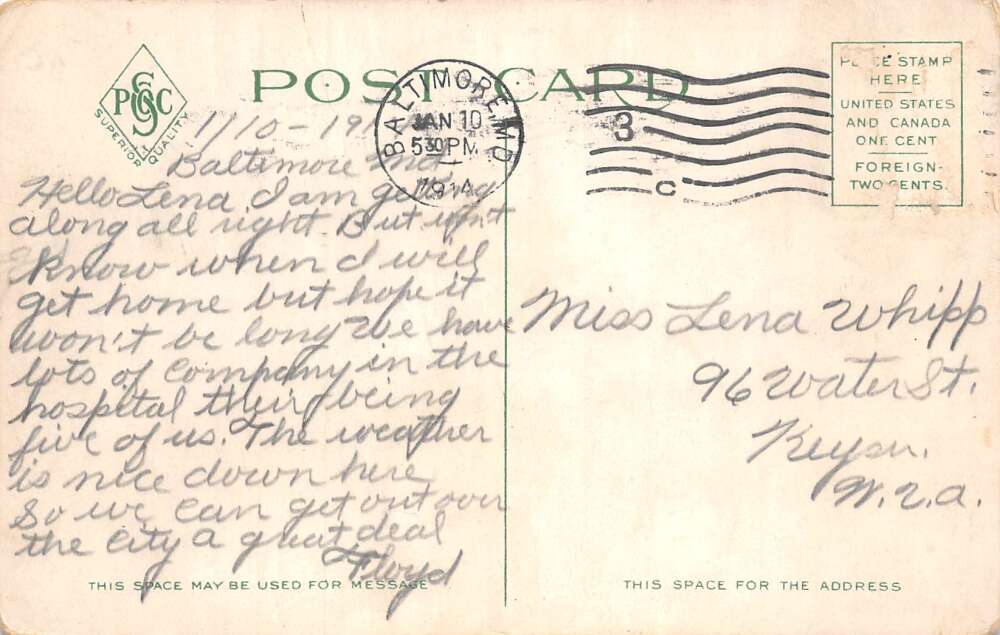 POST CARD
PGSC
SUPERIOR QUALITY
BALTIMORE, MD.
JAN 10
530 PM
1914
3
C
PLACE STAMP
HERE
UNITED STATES
AND CANADA
ONE CENT
FOREIGN-
TWO CENTS.
1/10-191
Baltimore Md.
Hello Lena, I am getting
along all right. But don't
know when I will
get home but hope it
won't be long We have
lots of Company in the
hospital their being
five of us. The weather
is nice down here
So we can get out over
the City a great deal
Floyd
Miss Lena Whipp
96 Water St.
Keyser.
W.Va.
THIS SPACE MAY BE USED FOR MESSAGE
THIS SPACE FOR THE ADDRESS